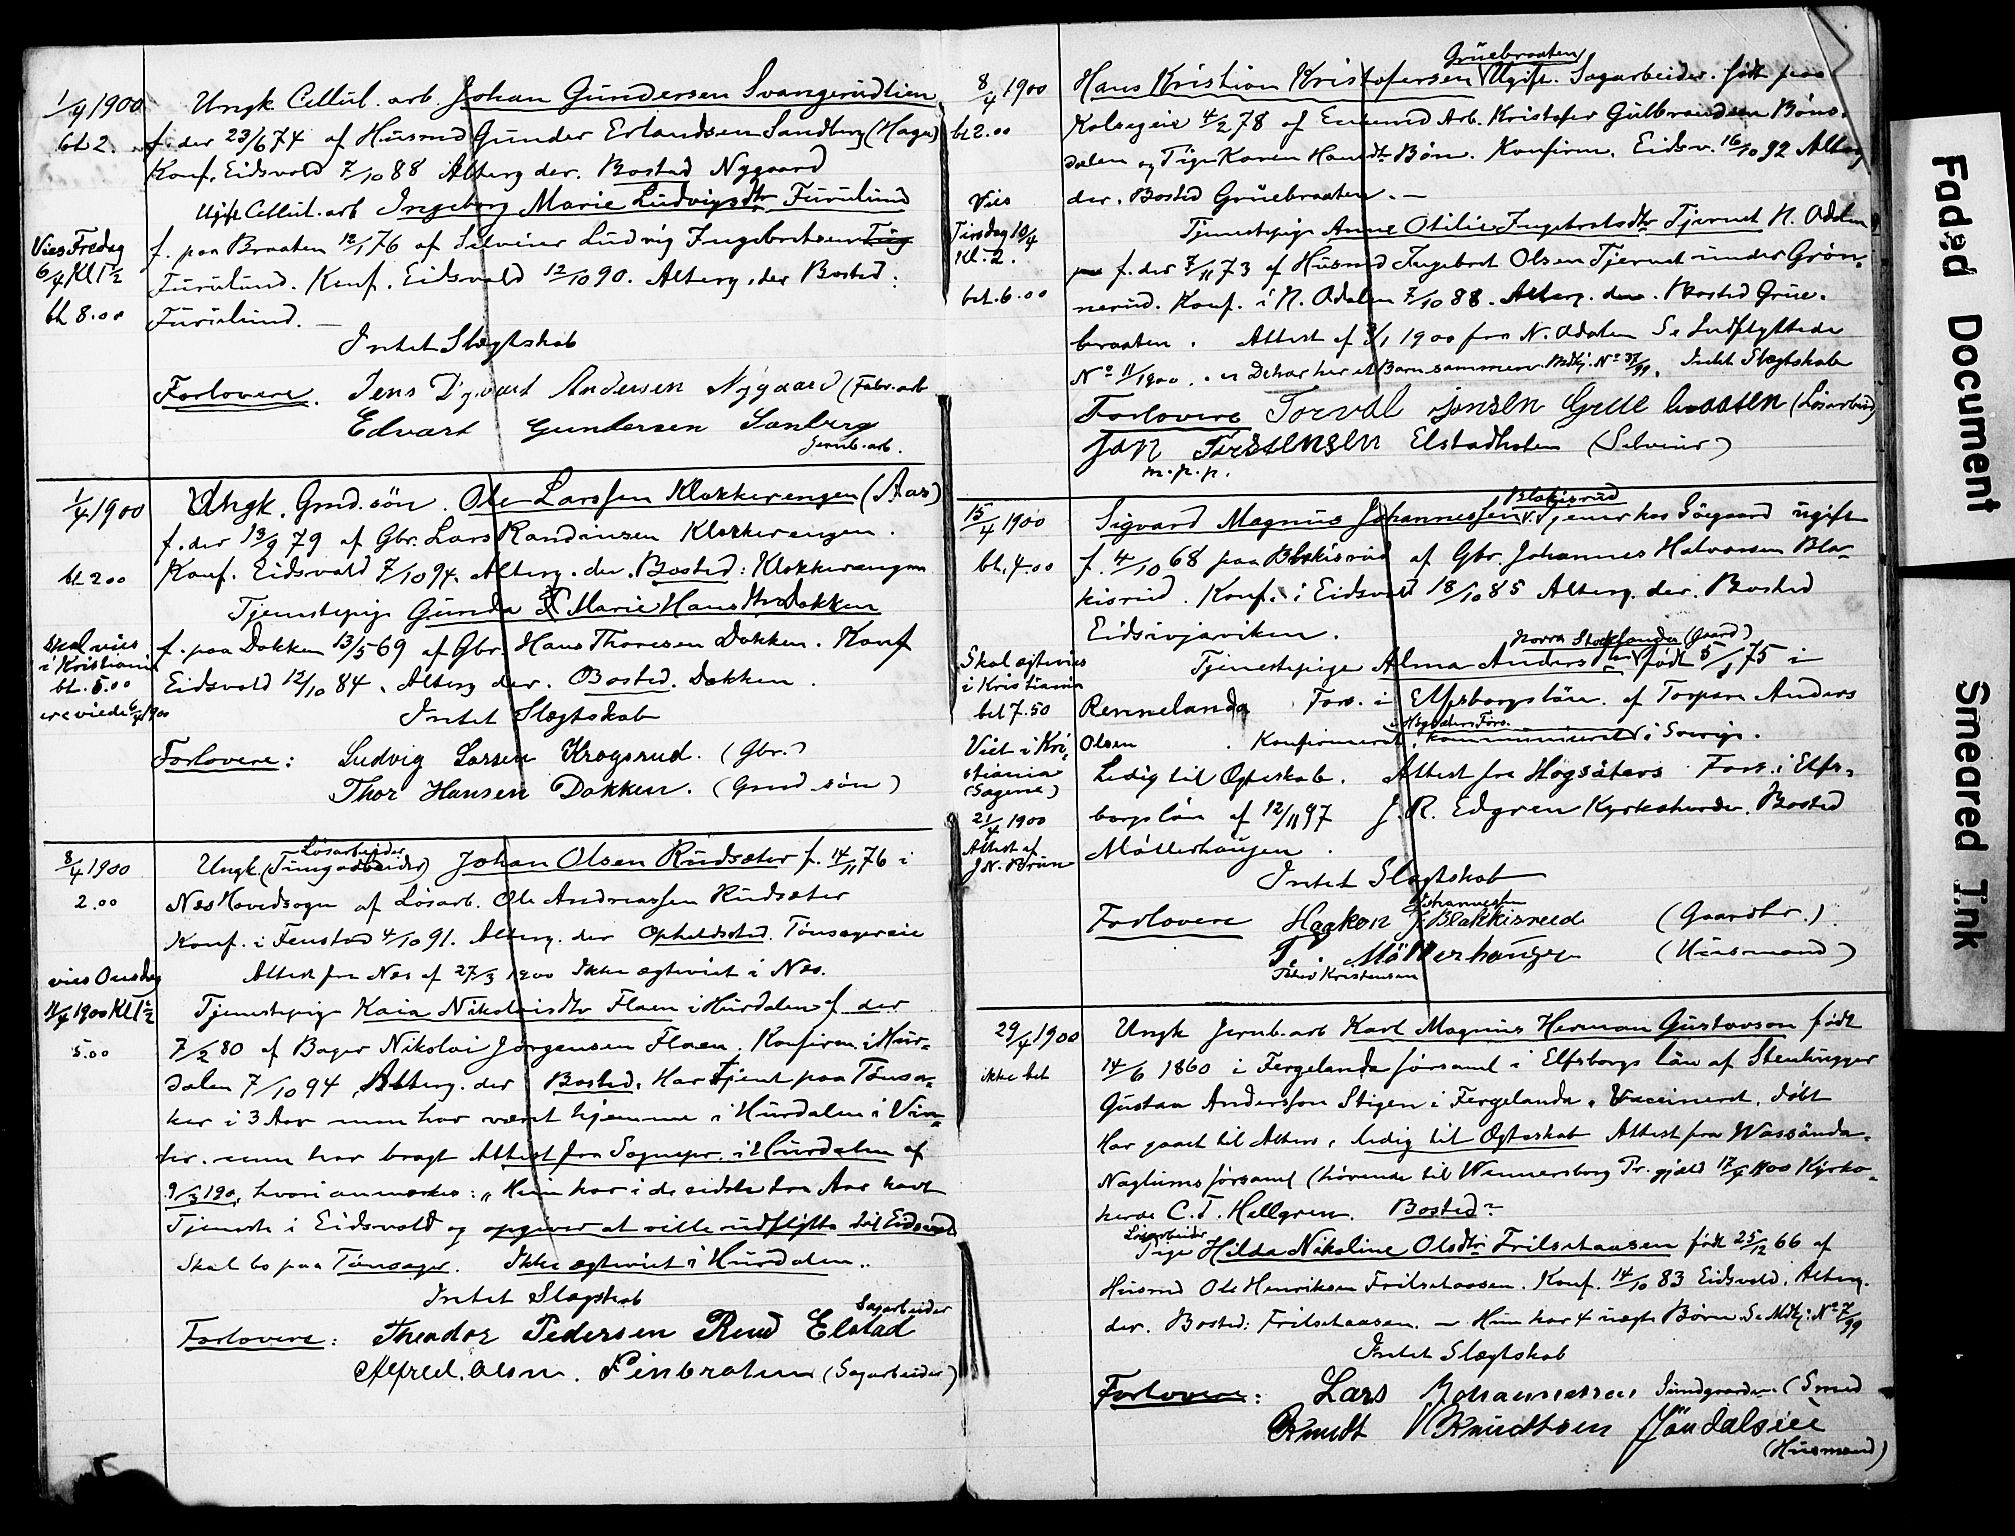 1/4 1900
bt 2.
Vies Fredag
6/4 Kl 1 1/2
bt 8.00
Ungk. Cellul. arb. Johan Gundersen Svangerudlien
f. der 23/6 74 af Husmd Gunder Erlandsen Sandberg (Haga)
Konf. Eidsvold 7/10 88 Alterg der. Bosted Nygaard
Ugift Cellul. arb Ingeborg Marie Ludvigsdtr Furulund
f. paa Braaten 12/1 76 af Selveier Ludvig Ingebretsen
Furulund. Konf. Eidsvold 12/10 90. Alterg. der Bosted:
Furulund. —
Intet Slægtskab
Forlovere. Jens Dyvart Andersen Nygaard (Fabr. arb
Edvart Gundersen Sanberg
Jernb. arb.
1/4 1900
bt 2 00
Skal vies
i Kristiania
bt. 5.00
ere viede 6/4 1900
Ungk. Grmd. søn. Ole Larssen Klokkerengen (Aas)
f. der 13/9 79 af Gbr. Lars Randinsen Klokkerengen.
Konf. Eidsvold 7/10 94. Alterg. der. Bosted: Klokkerengen
Tjenestepige Gunda Marie Hansdtr Dokken
f. paa Dokken 13/5 69 af Gbr. Hans Thoresen Dokken. Konf
Eidsvold 12/10 84. Alterg der. Bosted. Dokken.
Intet Slægtskab
Forlovere: Ludvig Larsen Krogsrud. (Gbr.)
Thor Hansen Dokken. (Grmd søn)
8/4 1900
2.00
vies Onsdag
11/4 1900 Kl 1 1/2
5.00
Løsarbeider
Ungk. (Tungarbeider) Johan Olsen Rudsæter f. 14/11 76 i
Næs Hovedsogn af Løsarb. Ole Andreassen Rudsæter
Konf. i Fenstad 4/10 91. Alterg. der Opholdssted. Tønsagereie
Attest fra Næs af 27/3 1900 Ikke ægteviet i Næs.
Tjenestepige Kaia Nikolaisdtr Flaen i Hurdalen f. der
7/2 80 af Bager Nikolai Jørgensen Flaen. Konfirm. i Hur-
dalen 7/10 94 Alterg. der Bosted. Har tjent paa Tønsa-
ker i 3 Aar men har været hjemme i Hurdalen i Vin-
ter. men har bragt Attest fra Sognepr. i Hurdalen af
9/3 190, hvori anmærkes: "Hun har i de sidste tre Aar havt
Tjeneste i Eidsvold og opgiver at ville udflytte til Eidsvold
Skal bo paa Tønsager. Ikke ægteviet i Hurdalen..
Intet Slægtskab
Sagarbeider
Forlovere: Theodor Pedersen Rud Elstad
Alfred. Olsen. Finbraten (Sagarbeider)
8/4 1900
bt 2.00
Vies
Tirsdag 10/4
Kl. 2.
bet. 6.00
Gruebraaten
Hans Kristian Kristofersen Ugift. Sagarbeider. født paa
Kolsegeie 4/2 78 af Enkemd Arb. Kristofer Gulbrandsen Bøns-
dalen og Pige Karen Hansdtr Bøn. Konfirm. Eidsv. 16/10 92 Alterg
der. Bosted Gruebraaten. —
Tjenestepige Anne Otilie Ingebretsdtr Tjernet N. Odalen
f. der 7/11 73 af Husmd Ingebret Olsen Tjernet under Grøn-
nerud. Konf. i N. Odalen 7/10 88. Alterg. der. Bosted Grue-
braaten. Attest af 3/1 1900 fra N. Odalen Se Indflyttede
No 11/1900. De har her et Barn sammen. Mdtj. No 37/99. Intet Slægtskab
Forlovere Torval jonsen Grue braaten (Løsarbeid)
Jan Torstensen Elstadholen (Selveier)
m.p.p.
15/4 1900
bt. 4.00
Skal ægtevies
i Kristiania
bet 7.50
Viet i Kri-
stiania
(Sagene)
21/4 1900
Attest af
J.N. Brun
Blakisrud
Sigvard Magnus Johannessen Tjener hos Søegaard ugift
f. 4/10 68 paa Blakisrud af Gbr. Johannes Halvorsen Bla-
kisrud. Konf. i Eidsvold 18/10 85 Alterg. der. Bosted
Eidsivjaviken.
Norra Stocklanda (Gaard)
Tjenestepige Alma Andersdtr født 5/1 75 i
Rennelanda Førs. i Elfsborgs län. af Torpare Anders
i Högsäters Førs.
Olsen. Konfirmeret, kommuniceret i Sverige.
Ledig til Ægteskab. Attest fra Högsäters Førs. i Elfs-
borgs län af 12/11 97 J. R. Edgren Kyrkoherde. Bosted
Møllerhaugen.
Intet Slægtskab
Johannessen
Forlovere Haakon J. Blakkisrud (Gaardbr.)
T. Møllerhaugen (Husmand)
Kristensen
29/4 1900
ikke bet
Ungk Jernb. arb Karl Magnus Herman Gustavson født
14/6 1860 i Fergelanda församl i Elfsborgs län af Stenhugger
Gustav Andersson Stigen i Fergelanda. Vaccineret, døbt
Har gaaet til Alters, ledig til Ægteskab Attest fra Wassända-
Naglums församl (hørende til Wennersborg Pr.gjeld 17/4 1900 Kyrko-
herde C. T. Hellgren. Bosted?
Løsarbeider
Pige Hilda Nikoline Olsdtr Frilsethaasen født 25/12 66 af
Husmd Ole Henriksen Frilsethaasen. Konf. 14/10 83 Eidsvold. Alterg.
der. Bosted: Frilsethaasen. — Hun har 4 uægte Børn. Se Mdtj: No 7/99
Intet Slægtskab
Forlovere: Lars Johannessen Sundgaarden (Smed
Knudt Knudtsen Jöndalseie
(Husmand)
Faded Document
Smeared Ink